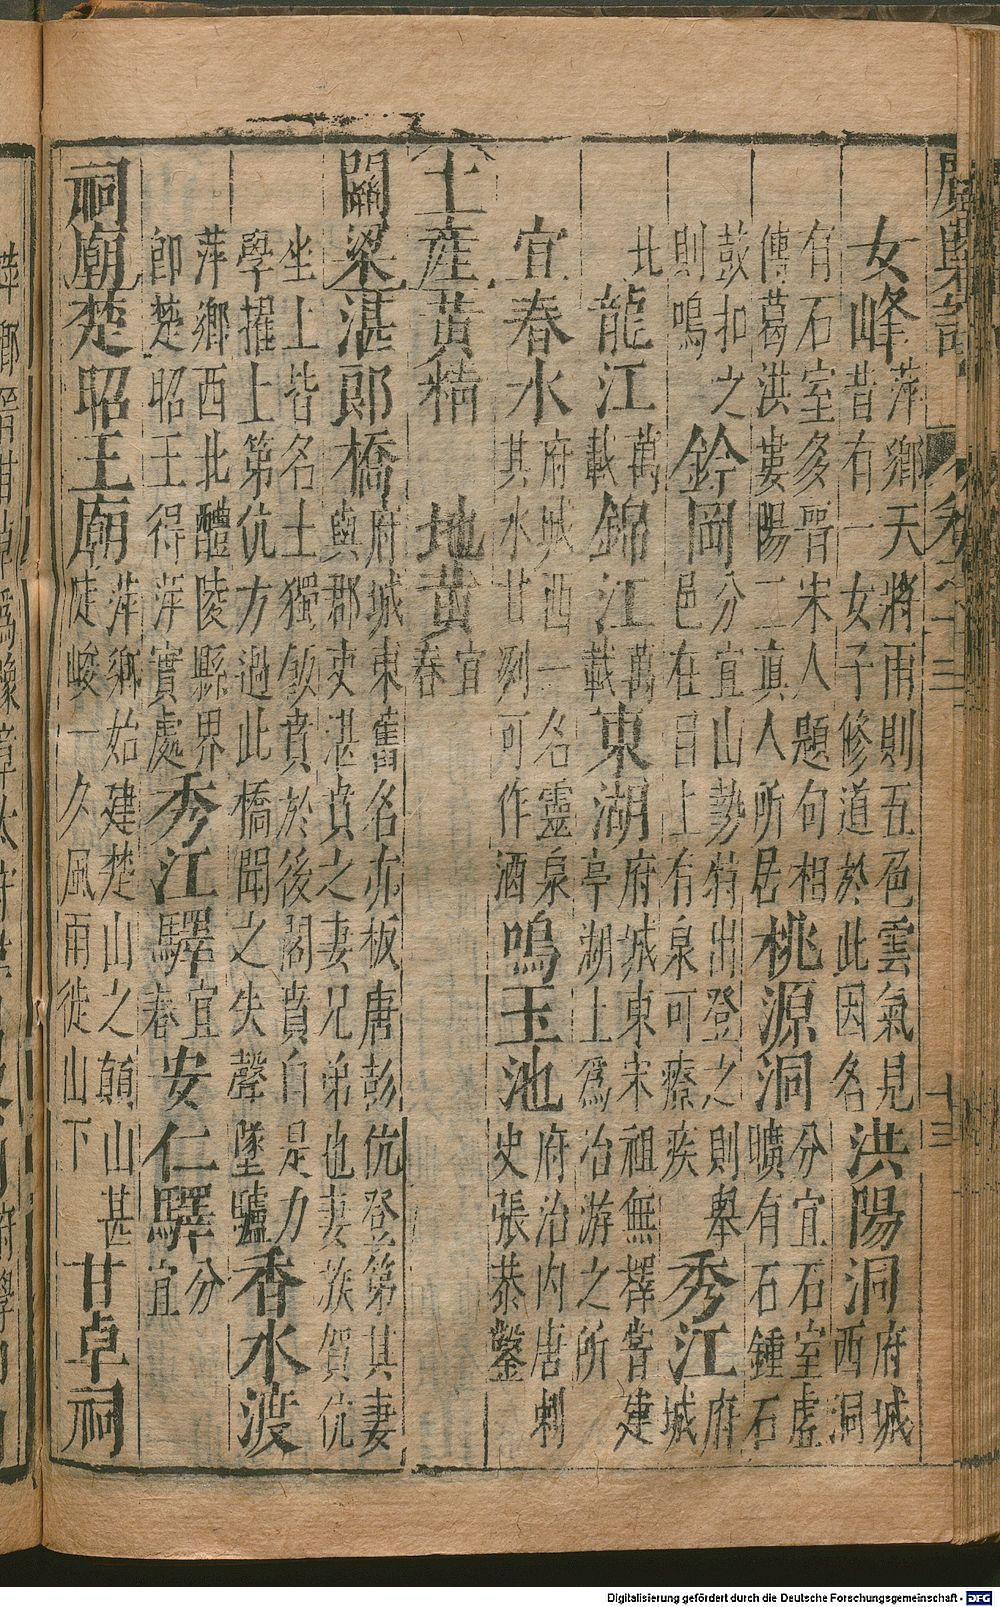 廣輿記 十三
女峰萍鄉天將雨則五色雲氣見昔有一女子修道於此因名洪陽洞府城西洞
有石室多晉宋人題句相傳葛洪婁陽二真人所居桃源洞分宜石室虛曠有石鍾石
鼓扣之則鳴鈐岡分宜山勢特出登之則舉邑在目上有泉可療疾秀江府城
北龍江萬載錦江萬載東湖府城東宋祖無擇嘗建亭湖上爲冶游之所
宜春水府城西一名靈泉其水甘冽可作酒鳴玉池府治内唐刺史張恭鑿
土産黃精 地黃宜春
關梁湛郎橋府城東舊名亦板唐彭伉登第其妻與郡吏湛賁之妻兄弟也妻族賀伉
坐上皆名士獨飯賁於後閣賁自是力學擢上第伉方過此橋聞之失聲墜驢香水渡
萍鄉西北醴陵縣界卽楚昭王得萍實處秀江驛宜春安仁驛分宜
祠廟楚昭王廟萍鄉始建楚山之顛山甚陡峻一久風雨徙山下甘卓祠
Digitalisierung gefördert durch die Deutsche Forschungsgemeinschaft - DFG